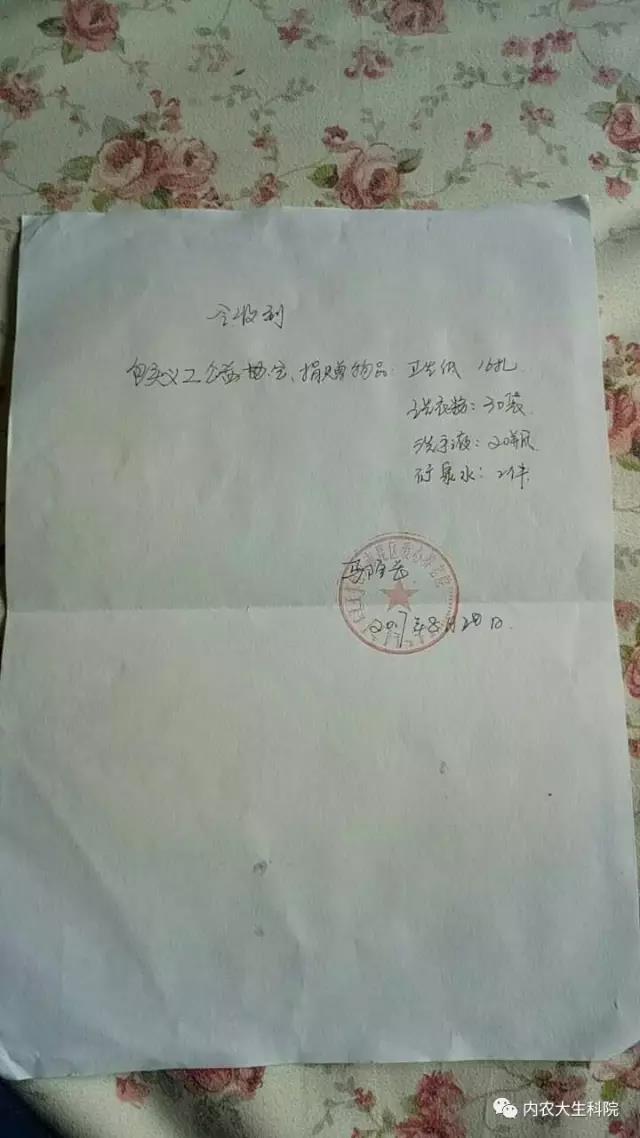 今收到
义工公益协会、捐赠物品：卫生纸 16扎
洗衣粉：30袋
洗手液：20瓶
矿泉水：2件
区爱心养老院
2017年8月28日
内农大生科院